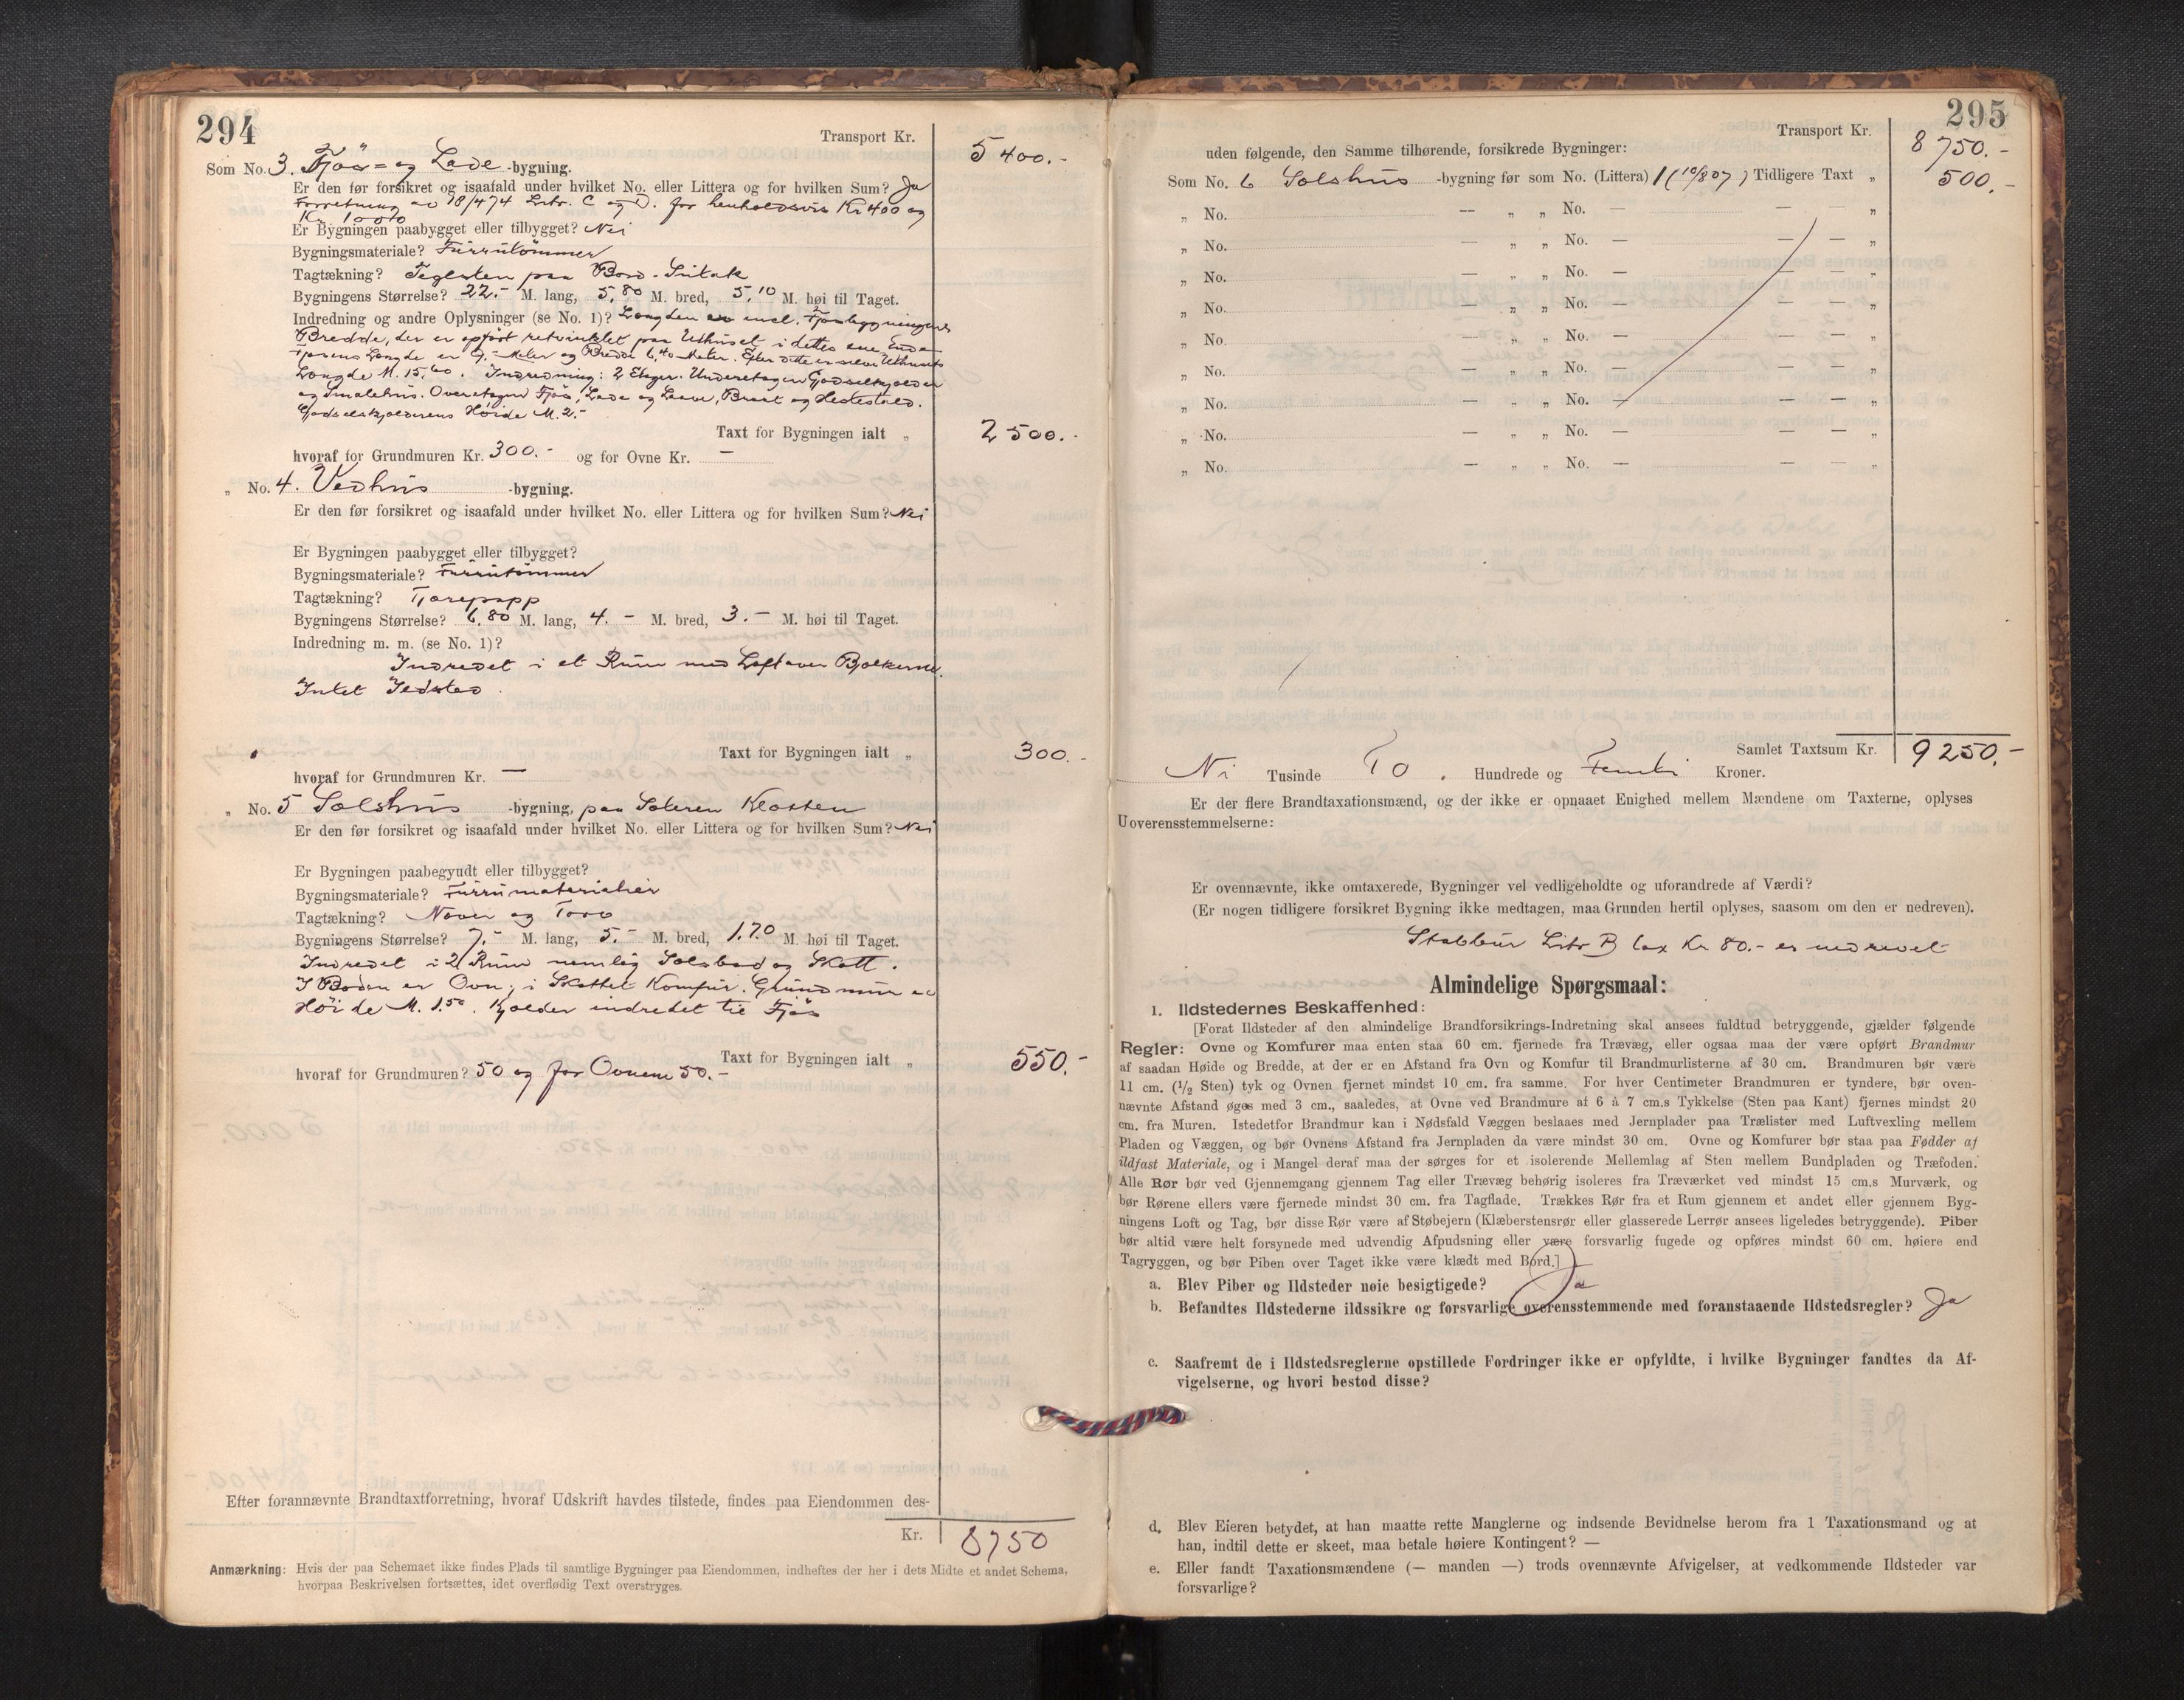 294
Transport Kr. 5400.-
Som No. 3. Fjös- og Lade -bygning.
Er den før forsikret og isaafald under hvilket No. eller Littera og for hvilken Sum? Ja
Forretning av 18/4 74 Litr. C og D. for henholdsvis Kr 400 og
Kr. 1000
Er Bygningen paabygget eller tilbygget? Nei
Bygningsmateriale? Furrutömmer
Tagtækning? Teglsten paa Bord-Sutak
Bygningens Størrelse? 22.- M. lang, 5,80 M. bred, 5,10 M. høi til Taget.
Indredning og andre Oplysninger (se No. 1)? Længden er incl. Fjösbygningens
Bredde, der er opfört retvinklet paa Uthuset i dettes ene Ende
Fjösens Længde er 9,- Meter og Bredde 6,40 Meter. Efter dette er selve Uthusets
Længde M. 15,60. Indredning: 2 Etager. Underetagen Gjödselkjælder
og Smalehus. Overetagen Fjös, Lade og Laave, Braat og Hestestald.
Gjödselskjælderens Høide M. 2.-
Taxt for Bygningen ialt „ 2500.-
hvoraf for Grundmuren Kr. 300.- og for Ovne Kr. —
„ No. 4. Vedhus -bygning.
Er den før forsikret og isaafald under hvilket No. eller Littera og for hvilken Sum? Nei
Er Bygningen paabygget eller tilbygget?
Bygningsmateriale? Furrutömmer
Tagtækning? Tjærepapp
Bygningens Størrelse? 6,80 M. lang, 4.- M. bred, 3.- M. høi til Taget.
Indredning m. m. (se No. 1)?
Indredet i et Rum med Loft over Bjelkerne.
Intet Ildsted.
Taxt for Bygningen ialt „ 300.-
hvoraf for Grundmuren Kr. —
„ No. 5 Sælshus -bygning, paa Sæteren Klosten
Er den før forsikret og isaafald under hvilket No. eller Littera og for hvilken Sum? Nei
Er Bygningen paabegyudt eller tilbygget?
Bygningsmateriale? Furrumaterialier
Tagtækning? Næver og Torv
Bygningens Størrelse? 7.- M. lang, 5.- M. bred, 1.70 M. høi til Taget.
Indredet i 2 Rum nemlig Sælsbod og Skott.
I Boden er Ovn, i Skottet Komfur. Grundmur er
Höide M. 1.50. Kjælder indredet til Fjös
Taxt for Bygningen ialt „ 550.-
hvoraf for Grundmuren? 50 og for Ovnene 50.-
Efter forannævnte Brandtaxtforretning, hvoraf Udskrift havdes tilstede, findes paa Eiendommen des-
Kr. 8750
Anmærkning: Hvis der paa Schemaet ikke findes Plads til samtlige Bygninger paa Eiendommen, indheftes der her i dets Midte et andet Schema,
hvorpaa Beskrivelsen fortsættes, idet overflødig Text overstryges.
295
Transport Kr. 8750.-
uden følgende, den Samme tilhørende, forsikrede Bygninger:
Som No. 6 Sælshus -bygning før som No. (Littera) 1 (10/8 07) Tidligere Taxt „ 500.-
„ No. — „ „ No. — — — „
„ No. — „ „ No. — — — „
„ No. — „ „ No. — — — „
„ No. — „ „ No. — — — „
„ No. — „ „ No. — — — „
„ No. — „ „ No. — — — „
„ No. — „ „ No. — — — „
„ No. — „ „ No. — — — „
„ No. — „ „ No. — — — „
Samlet Taxtsum Kr. 9250.-
Ni Tusinde To. Hundrede og Femti Kroner.
Er der flere Brandtaxationsmænd, og der ikke er opnaaet Enighed mellem Mændene om Taxterne, oplyses
Uoverensstemmelserne:
Er ovennævnte, ikke omtaxerede, Bygninger vel vedligeholdte og uforandrede af Værdi?
(Er nogen tidligere forsikret Bygning ikke medtagen, maa Grunden hertil oplyses, saasom om den er nedreven).
Stabbur Litr B tax Kr 80.- er nedrevet
Almindelige Spørgsmaal:
1. Ildstedernes Beskaffenhed:
[Forat Ildsteder af den almindelige Brandforsikrings-Indretning skal ansees fuldtud betryggende, gjælder følgende
Regler: Ovne og Komfurer maa enten staa 60 cm. fjernede fra Trævæg, eller ogsaa maa der være opført Brandmur
af saadan Høide og Bredde, at der er en Afstand fra Ovn og Komfur til Brandmurlisterne af 30 cm. Brandmuren bør være
11 cm. (1/2 Sten) tyk og Ovnen fjernet mindst 10 cm. fra samme. For hver Centimeter Brandmuren er tyndere, bør oven-
nævnte Afstand øges med 3 cm., saaledes, at Ovne ved Brandmure af 6 à 7 cm.s Tykkelse (Sten paa Kant) fjernes mindst 20
cm. fra Muren. Istedetfor Brandmur kan i Nødsfald Væggen beslaaes med Jernplader paa Trælister med Luftvexling mellem
Pladen og Væggen, og bør Ovnens Afstand fra Jernpladen da være mindst 30 cm. Ovne og Komfurer bør staa paa Fødder af
ildfast Materiale, og i Mangel deraf maa der sørges for et isolerende Mellemlag af Sten mellem Bundpladen og Træfoden.
Alle Rør bør ved Gjennemgang gjennem Tag eller Trævæg behørig isoleres fra Træværket ved mindst 15 cm.s Murværk, og
bør Rørene ellers være fjernede mindst 30 cm. fra Tagflade. Trækkes Rør fra et Rum gjennem et andet eller gjennem Byg-
ningens Loft og Tag, bør disse Rør være af Støbejern (Klæberstensrør eller glasserede Lerrør ansees ligeledes betryggende). Piber
bør altid være helt forsynede med udvendig Afpudsning eller være forsvarlig fugede og opføres mindst 60 cm. høiere end
Tagryggen, og bør Piben over Taget ikke være klædt med Bord.]
a. Blev Piber og Ildsteder nøie besigtigede? Ja
b. Befandtes Ildstederne ildssikre og forsvarlige overensstemmende med foranstaaende Ildstedsregler? Ja
c. Saafremt de i Ildstedsreglerne opstillede Fordringer ikke er opfyldte, i hvilke Bygninger fandtes da Af-
vigelserne, og hvori bestod disse?
d. Blev Eieren betydet, at han maatte rette Manglerne og indsende Bevidnelse herom fra 1 Taxationsmand og at
han, indtil dette er skeet, maa betale høiere Kontingent? —
e. Eller fandt Taxationsmændene (— manden —) trods ovennævnte Afvigelser, at vedkommende Ildsteder var
forsvarlige?